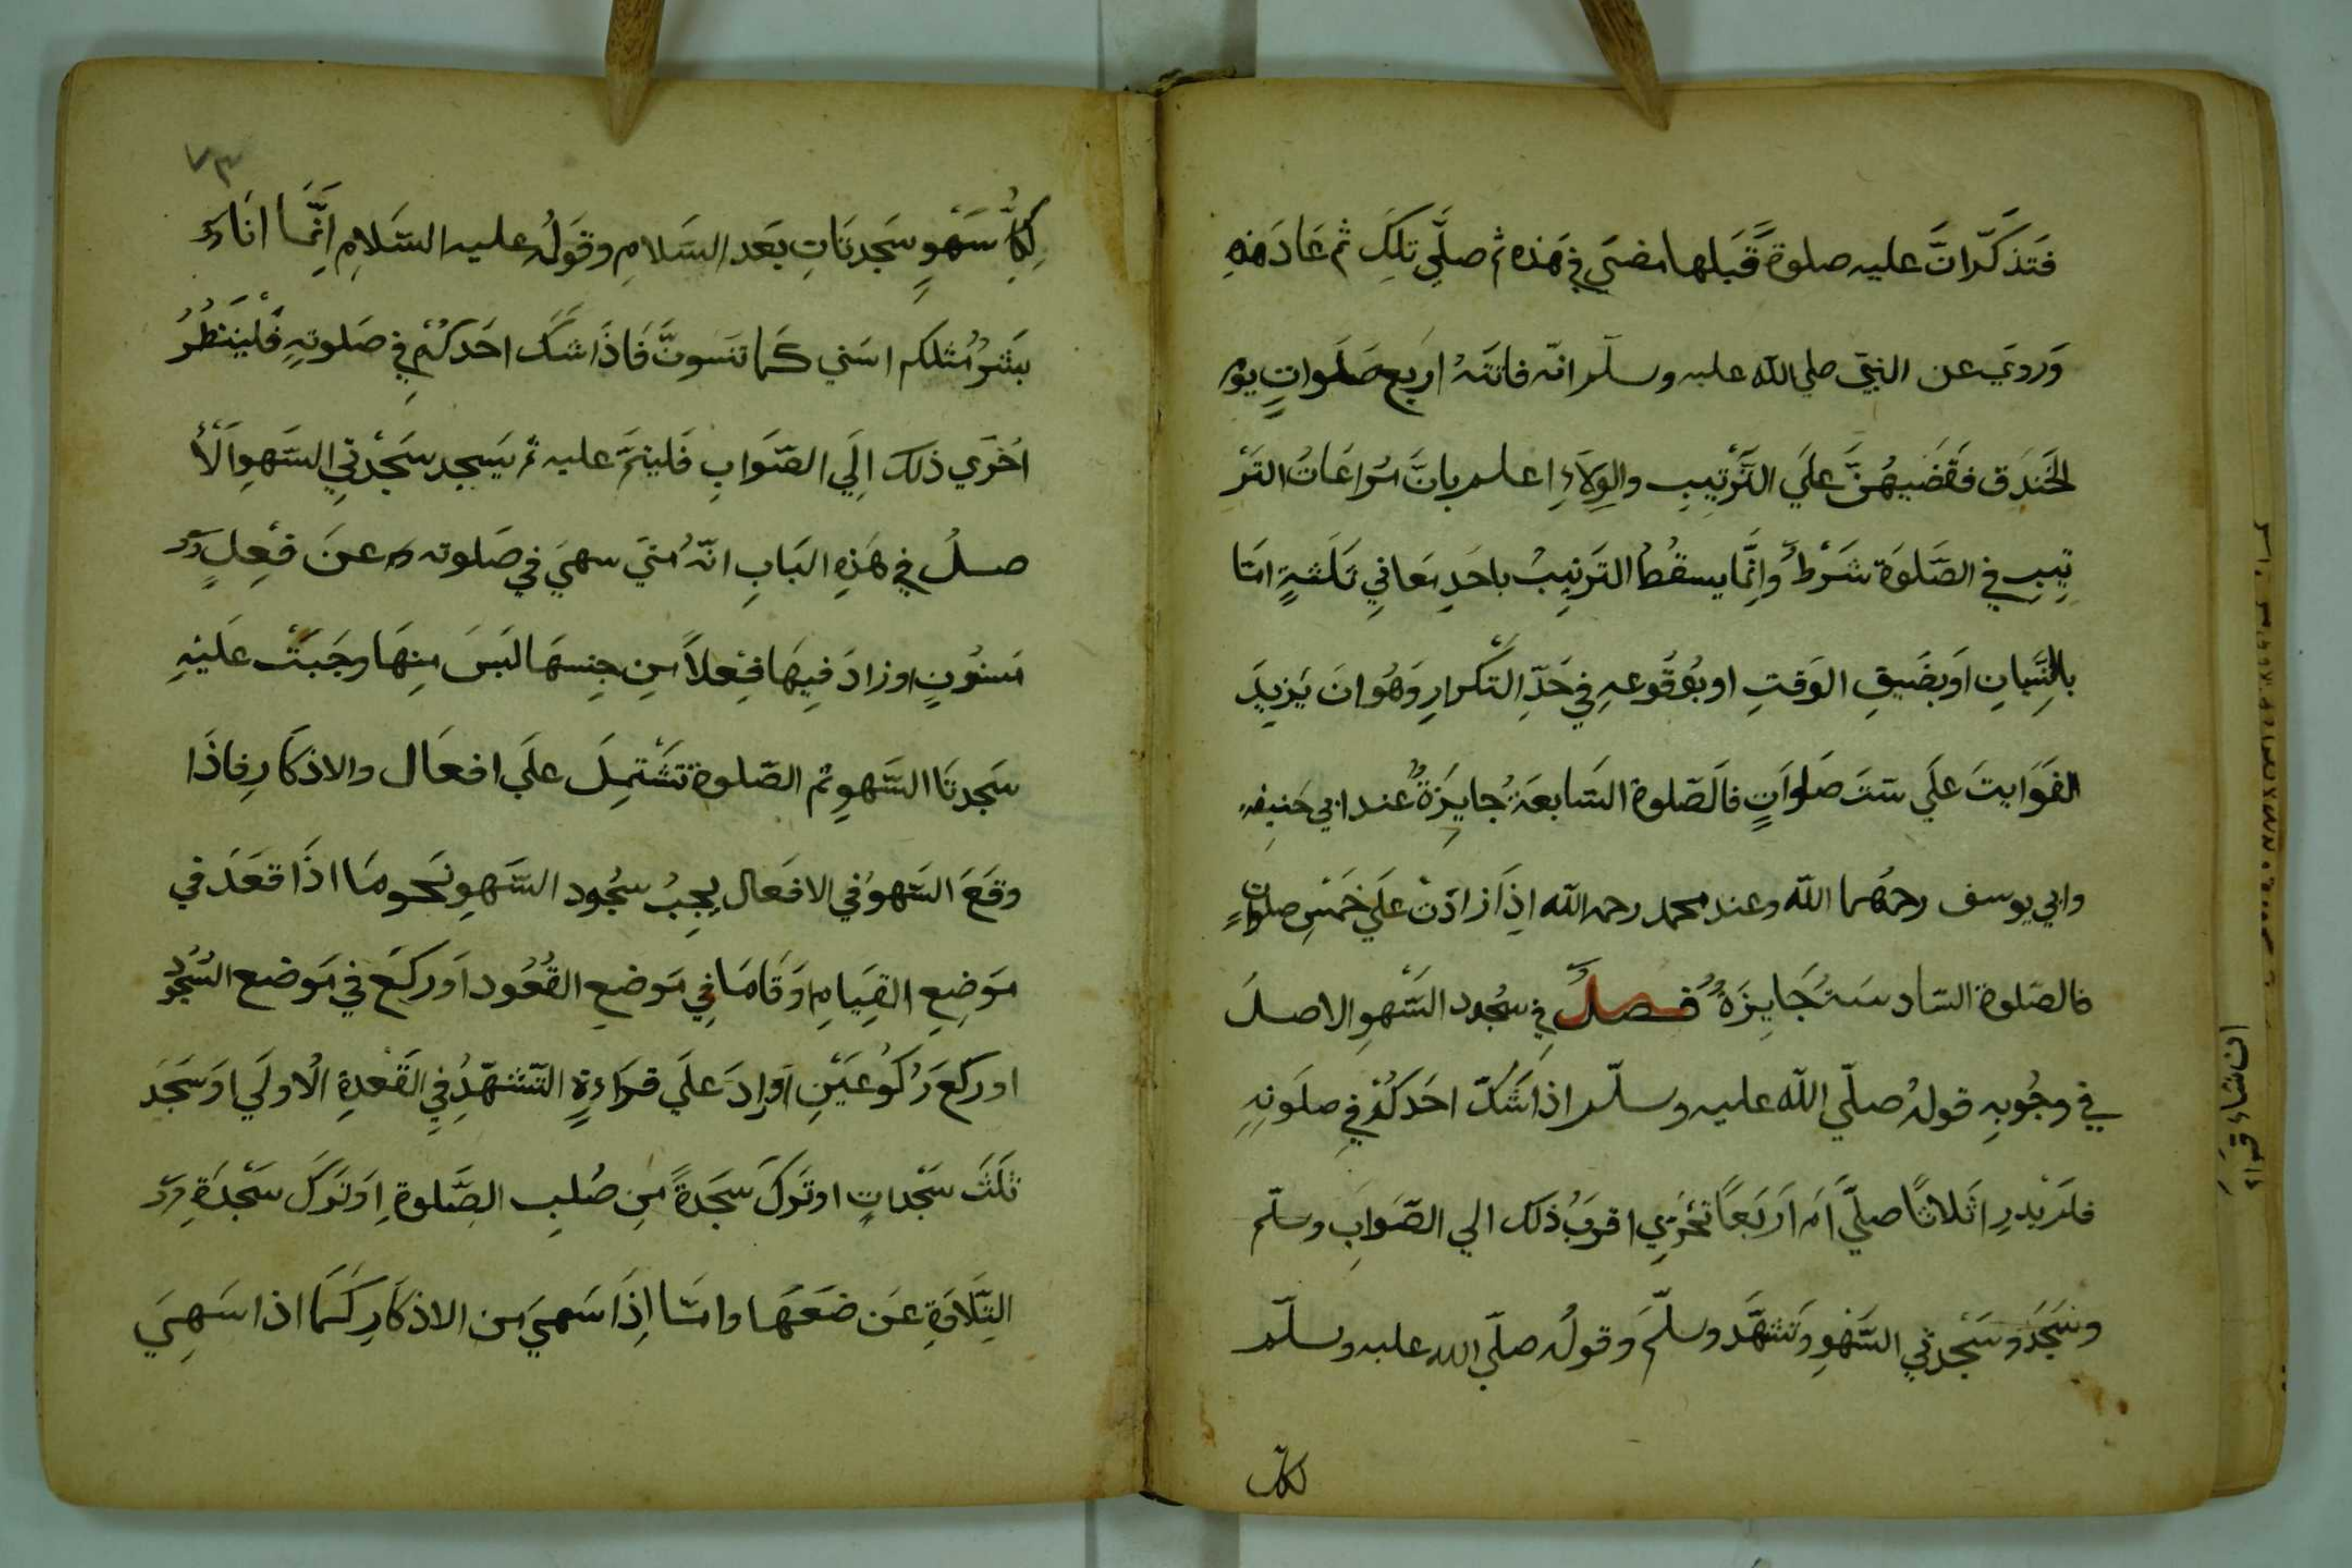 فَتَذكَّرانَّ عليه صلوةً قَبلها مضَي في هَذه ثم صلَّي تلكَ ثم عَادَ هَذِهِ
وَروي عن النبيّ صلي الله عليه وسلّم انّه فاتَتهُ اربع صَلَواتٍ يوم
الخَندَق فقَضَيهُنَّ علَي التَّرتِيبِ والوِلاَءِ اعلم بانَّ مُراعَاتُ التَر
تِيبِ في الصَّلوَة شَرْطٌ وانَّما يسقُطُ التَرتِيبُ باحَدِ مَعاني ثَلثةٍ امّا
بالنِّسيانِ اَوبضَيقِ الوَقتِ اوبوُقُوعهِ في حَدِّ التّكرارِ وَهُوانَ يَزيدَ
الفَوَايتَ علَي ستّ صَلوَاتٍ فالصّلوة السّابعَةُ جايزَةٌ عند ابي حَنيفه
وابي يوسف رحمهُما الله وعند محمد رحمه الله اذَا زادَتْ علَي خَمْسِ صلوَاتٍ
فالصّلوة السّادسَة جَايزَةٌ فصلٌ في سجُود السَّهوِ الاصلُ
في وجُوبهِ قولهُ صلّي الله عليه وسلّم اذا شَكّ احَدكُم في صلَوتِهِ
فلَم يَدرِ اثَلاثًا صلّي اَم اَربَعًا تحَرّي اقربُ ذَلك الي الصّوَابِ وسلّم
وسَجَدَ وسَجْدتي السَّهْوِ وَتشهَّد وسلّمَ وقولُه صلّي الله عليه وسلّم
لكلّ
٧٣
لِكلِّ سَهْوٍ سَجدتَاتِ بَعَد السَلامِ وقَولُه عليه السّلامِ انَّمَا انَاءَ
بشَرٌ مُثلكم اسَني كَما تنسَونَّ فَاذَا شَكّ احَدكُمْ في صَلوتهِ فَلْينظُرُ
اخرَي ذلك الَي الصّوَابِ فَليتمَّ عليه ثم يَسجد سَجْدتيِ السَّهوِ الْاَ
صلُ في هَذِهِ البَابِ انّهُ متَي سهيَ في صَلوته عنَ فِعِلٍ
مَسنوُنٍ اوزادَ فِيهَا فِعلاً مِن جِنسهَا لَيسَ مِنهَا وجَبَتْ علَيْهِ
سَجدتَا السَّهوِ ثم الصّلوة تَشتَمِلَ علَي افعَال والاذكَارِ فاذَا
وقَعَ السَّهوُ في الافعَال يجبُ سجُود السَّهوِ نَحو مَا اذَا قعَدَ في
مَوضِعِ القِيَامِ اَوقَامَا في مَوضعِ القعُود اَو ركَع في مَوضع السُّجُودِ
اوركَعَ رَكوُعَينِ اَوزادَ علَي قرَاءةِ التّشهّدِ فيِ القَعْدةِ الاُولَي اوسَجَدَ
ثلَثَ سَجْداتٍ اوتَركَ سَجَدةً مِن صُلبِ الصَّلوةِ اوتَركَ سَجْدَةِ
التِّلاوَةِ عَن ضعَعَها وامّا اذَا سَهيَ من الاذكَارِ كَما اذا سَهِيَ
ان شاء